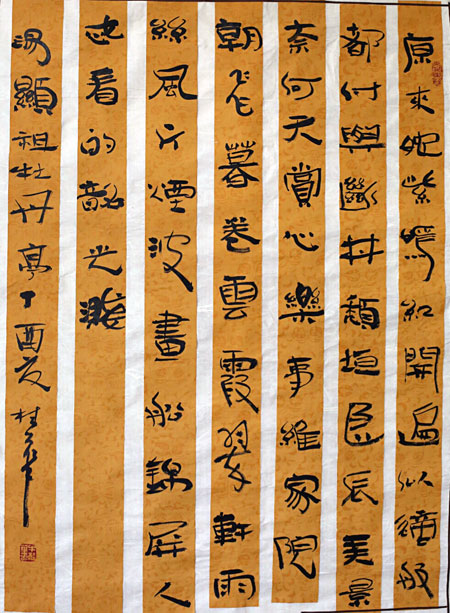 原來姹紫嫣紅開遍似這般
都付與斷井頹垣良辰美景
奈何天賞心樂事誰家院
朝飛暮卷雲霞翠軒雨
絲風片煙波畫船錦屏人
忒看的韶光賤
湯顯祖牡丹亭丁酉夏